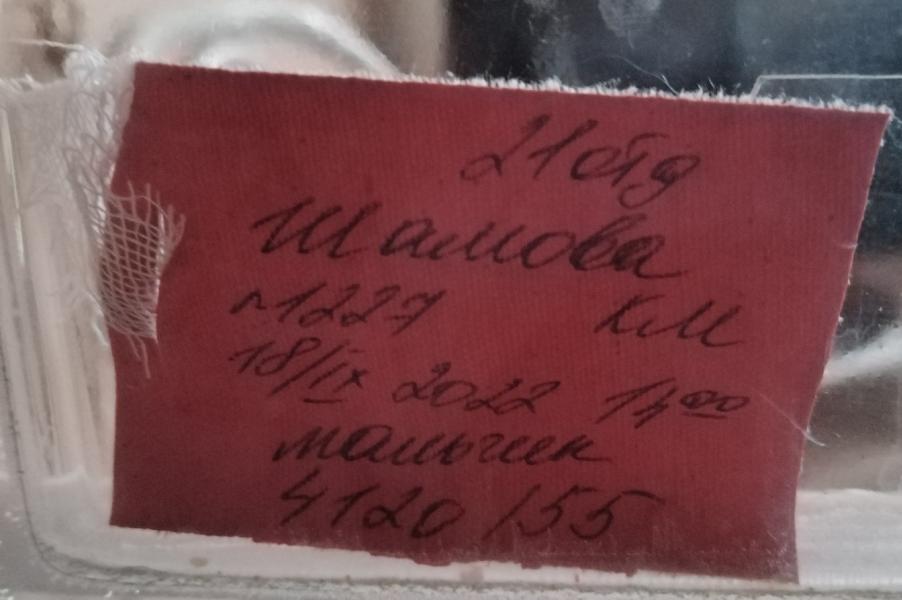 21 отд
Шамова
п1227 КМ
18/IX 2022 14 00
мальчик
4120 /55